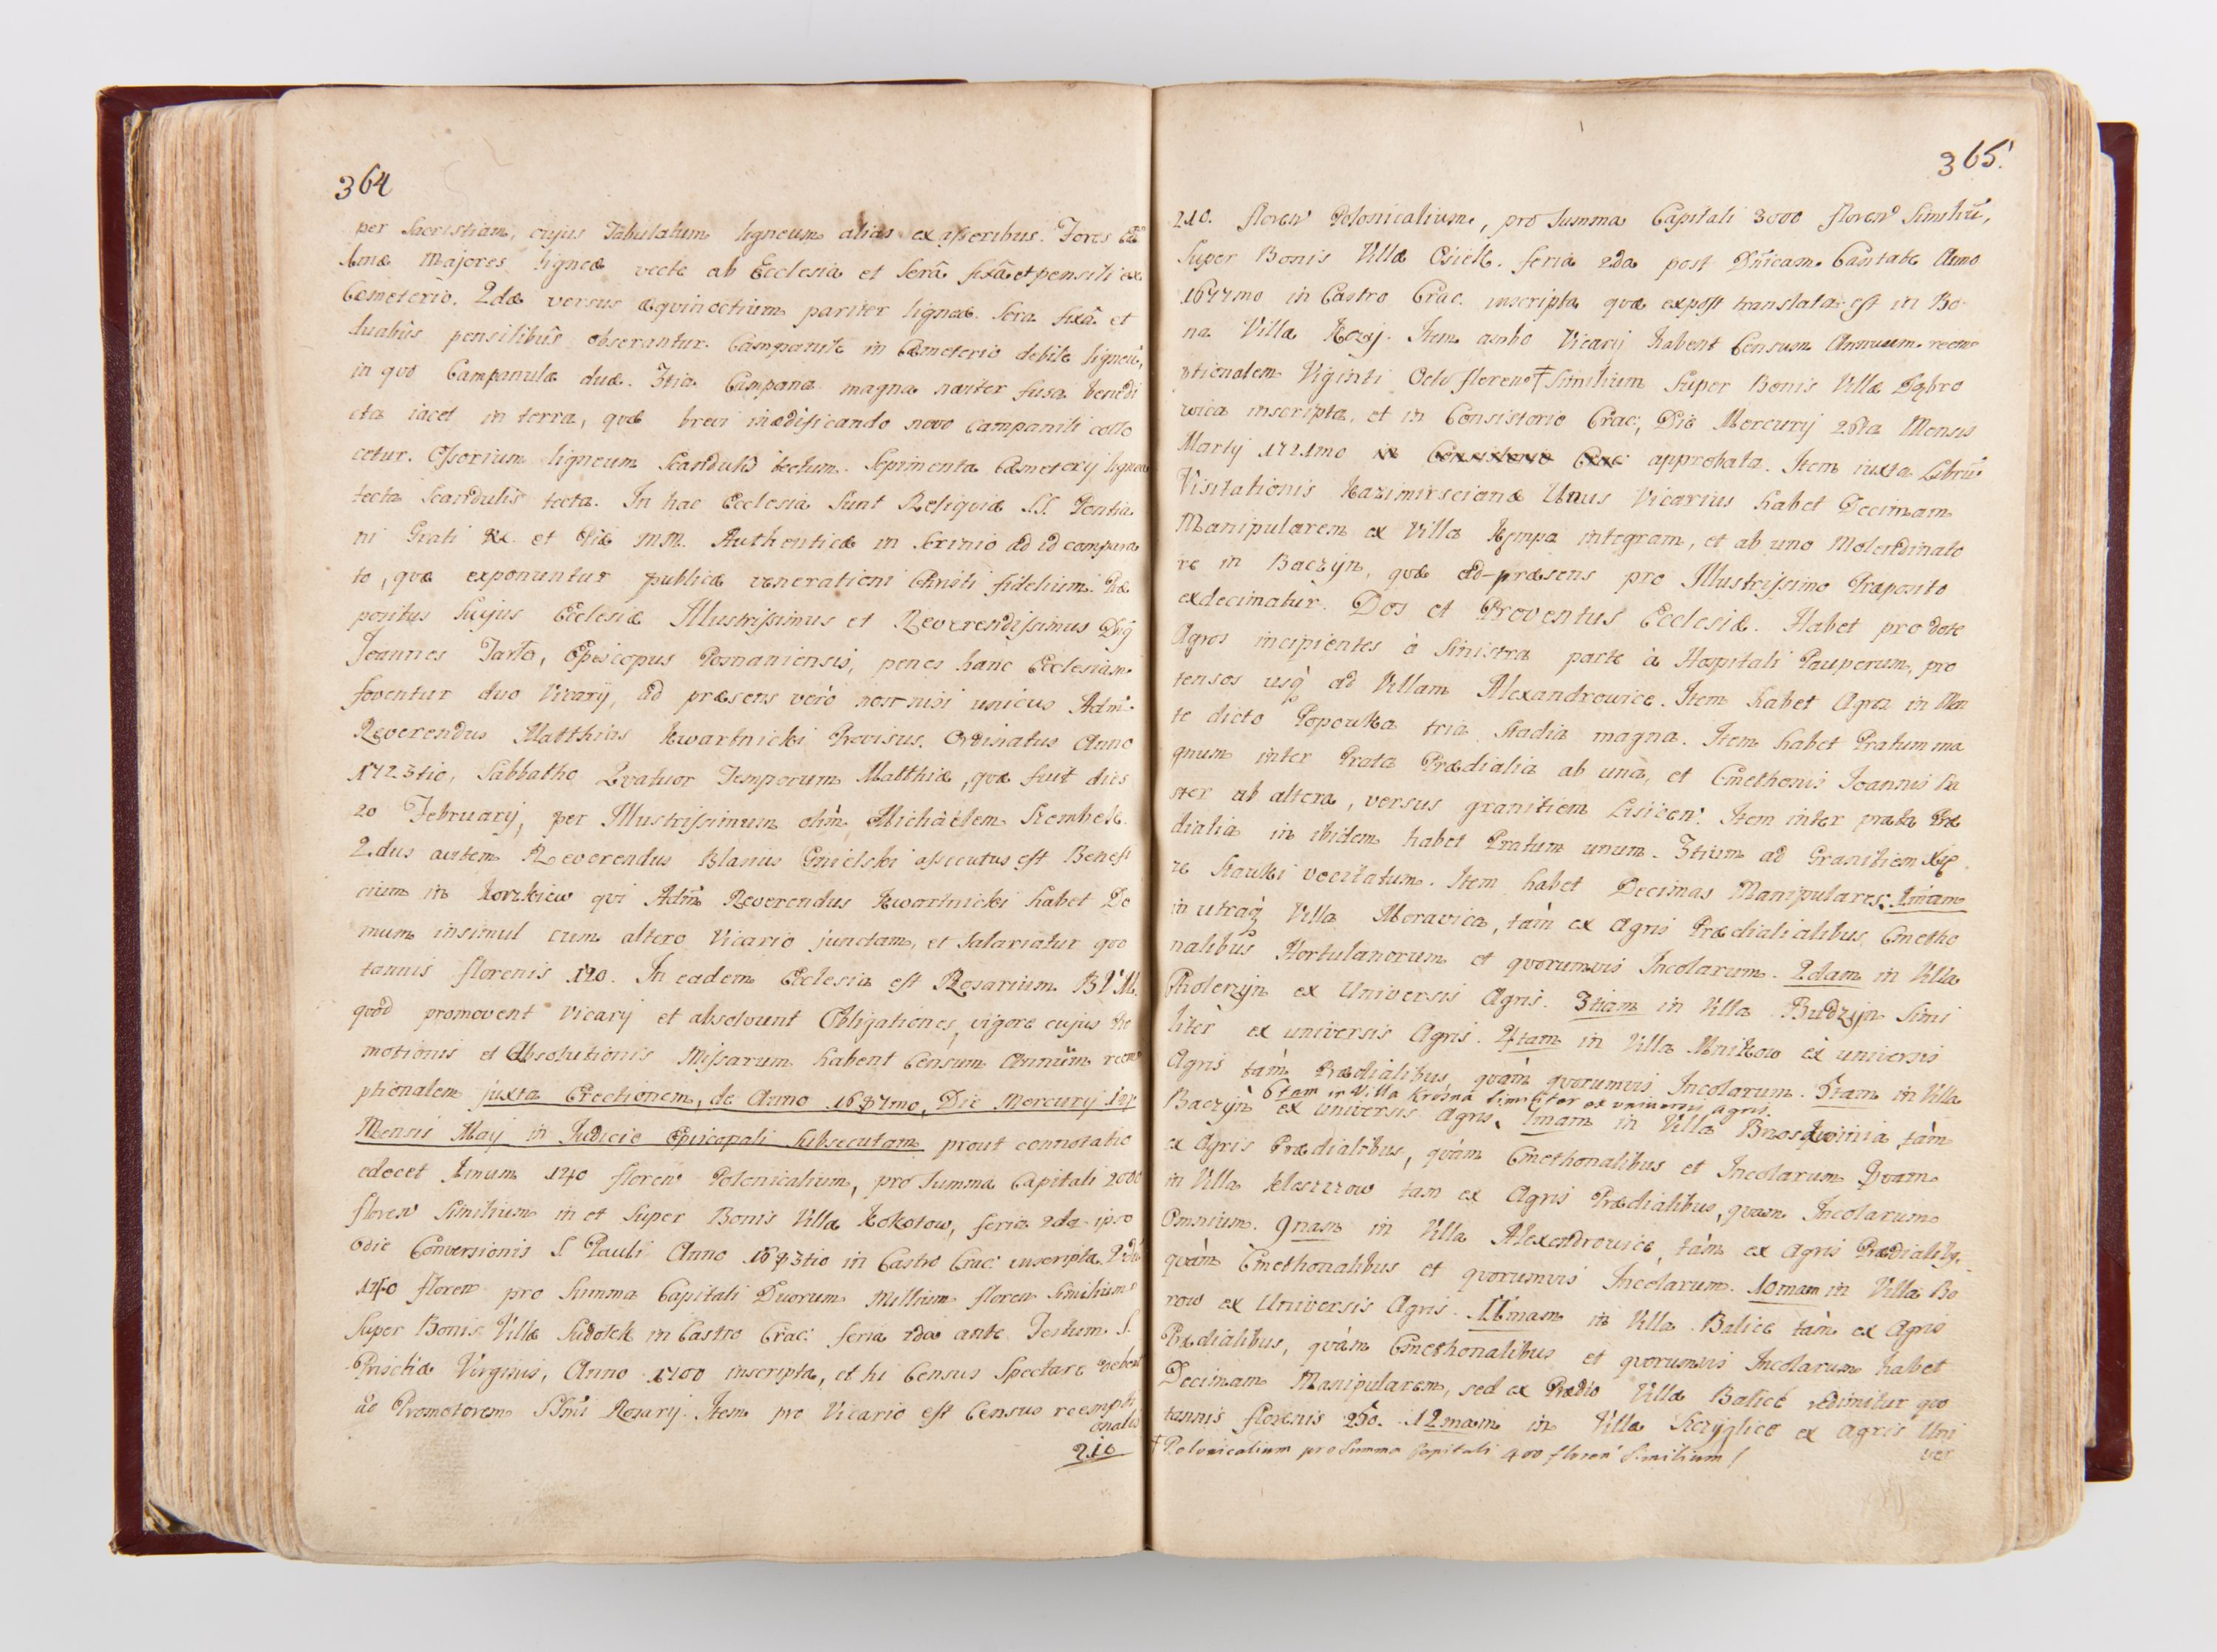 364
per Sacristiam, cujus Tabulatum ligneum alias ex asseribus. Fores
majores ligneæ vecte ab Ecclesia et serâ fixâ et pensili ex
Cæmeterio. 2dæ versus æqvinoctium pariter ligneæ. Sera fixâ et
duabus pensilibus obserantur. Campanile in Cæmeterio debile ligneũ,
in quo Campanulæ duæ. 3tia Campana magna noviter fusa benedi
cta iacet in terra, quæ brevi inædificando novo Campanili collo
cetur. Ossorium ligneum scandulis tectum. Sepimenta Cæmeterij lignea
tecta scandulis tecta. In hac Ecclesia sunt Reliquiæ S.S. Pontia
ni Grati et MM. Authenticæ in Scrinio ad id compara
to, quæ exponuntur publicæ venerationi Christi fidelium. Præ
positus hujus Ecclesiæ Illustrissimus et Reverendissimus Dnỹ
Joannes Tarło, Episcopus Posnaniensis, penes hanc Ecclesiam
foventur duo Vicarij, ad præsens verò non nisi unicus Adm:
Reverendus Matthias Kwartnicki Provisus. Ordinatus Anno
1723tio, Sabbatho Qvatuor Temporum Matthiæ, quæ fuit dies
20 February, per Illustrissimum olim Michäelem Szembek.
2dus autem Reverendus Blasius Gnielski assecutus est Benefi
cium in Korzkiew qui Adm̃ Reverendus Kwartnicki habet Do
mum insimul cum altero Vicario junctam, et salariatur quo
tannis florenis 120. In eadem Ecclesia est Rosarium B V M.
quod promovent Vicarij et absolvunt Obligationes, vigore cujus Pro
motionis et Absolutionis Missarum habent Censum Annũm reem
ptionalem juxta Erectionem, de Anno 1677mo, Die Mercury
Mensis Maij in Judicio Episcopali subsecutam prout connotatio
edocet Imum 140 floren Polonicalium, pro Summa Capitali 2000
floren Similium in et super Bonis Villæ Kokotow, feria 2da ipso
die Conversionis S. Pauli Anno 1673tio in Castro Crac: inscripta.
140 floren pro Summa Capitali Duorum Millium floren Similium
Super Bonis Villæ Sudołek in Castro Crac: feria 2da ante Festum S.
Priscæ Virginis, Anno 1700 inscripta, et hi Census Spectare debent
ad Promotorem SSmi Rosarij. Item pro Vicario est Census reempti
onalis
210
365.
210. floren Polonicalium, pro Summa Capitali 3000 floren Similiũ,
Super Bonis Villæ Osiek. feria 2da post Dñicam Cantate Anno
1677mo in Castro Crac. inscripta quæ expost translata est in Bo
na Villæ Kozy. Item ambo Vicarij habent Censum Annuum reem
ptionalem Viginti Octo floren † Similium Super Bonis Villæ Dąbro
wica inscripta, et in Consistorio Crac; Die Mercury 26ta Mensis
Martij 1721mo in Consistorio Crac: approbata. Item iuxta Librũ
Visitationis Kazimirscianæ Unus Vicarius habet Decimam
Manipularem ex Villa Kępa integram, et ab uno Molendinato
re in Baczyn, quæ ad præsens pro Illustrissimo Præposito
exdecimatur. Dos et Proventus Ecclesiæ. Habet pro dote
Agros incipientes à Sinistra parte à Hospitali Pauperum, pro
tensos usq̃ ad Villam Alexandrowice. Item habet Agros in Mon
te dicto Popowka tria Stadia magna. Item habet Pratum ma
gnum inter Prata Prædialia ab una, et Cmethonis Joannis
ster ab altera, versus granitiem Lisicen. Item inter prata Præ
dialia in ibidem habet Pratum unum. 3tium ad Granitiem
re Stawki vocitatum. Item habet Decimas Manipulares. 1mam
in utraq̃ Villa Moravica, tàm ex Agris Prædialialibus, Cmetho
nalibus Hortulanorum et qvorumvis Incolarum. 2dam in Villa
Cholerzyn ex Universis Agris. 3tiam in Villa Budzyn Simi
liter ex universis Agris. 4tam in Villa Mnikow ex universis
Agris tàm Prædialibus qvàm qvorumvis Incolarum. 5tam in Villa
6tam in Villa Krosna Similiter ex universis agris.
Baczyn ex Universis Agris. 7mam in Villa Brzoskwinia, tàm
ex Agris Prædialibus, qvàm Cmethonalibus et Incolarum
in Villa Kleszczow tam ex Agris Prædialibus, qvam Incolarum
Omnium. 9nam in Villa Alexandrowice, tàm ex Agris Prædialibq,
qvàm Cmethonalibus et qvorumvis Incolarum. 10mam in Villa Bu
row ex Universis Agris. 11mam in Villa Balice tàm ex Agris
Prædialibus, qvàm Cmethonalibus et qvorumvis Incolarum habet
Decimam Manipularem, sed ex Prædio Villæ Balice redimitur quo
tannis florenis 250. 12mam in Villa Szczyglice ex Agris Uni
ver
† Polonicalium pro Summa Capitali 400 floren Similium